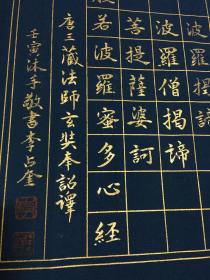 波羅揭
波羅僧揭諦
菩提薩婆訶
般若波羅蜜多心經
唐三藏法師玄奘奉詔譯
壬寅沐手敬書李占奎